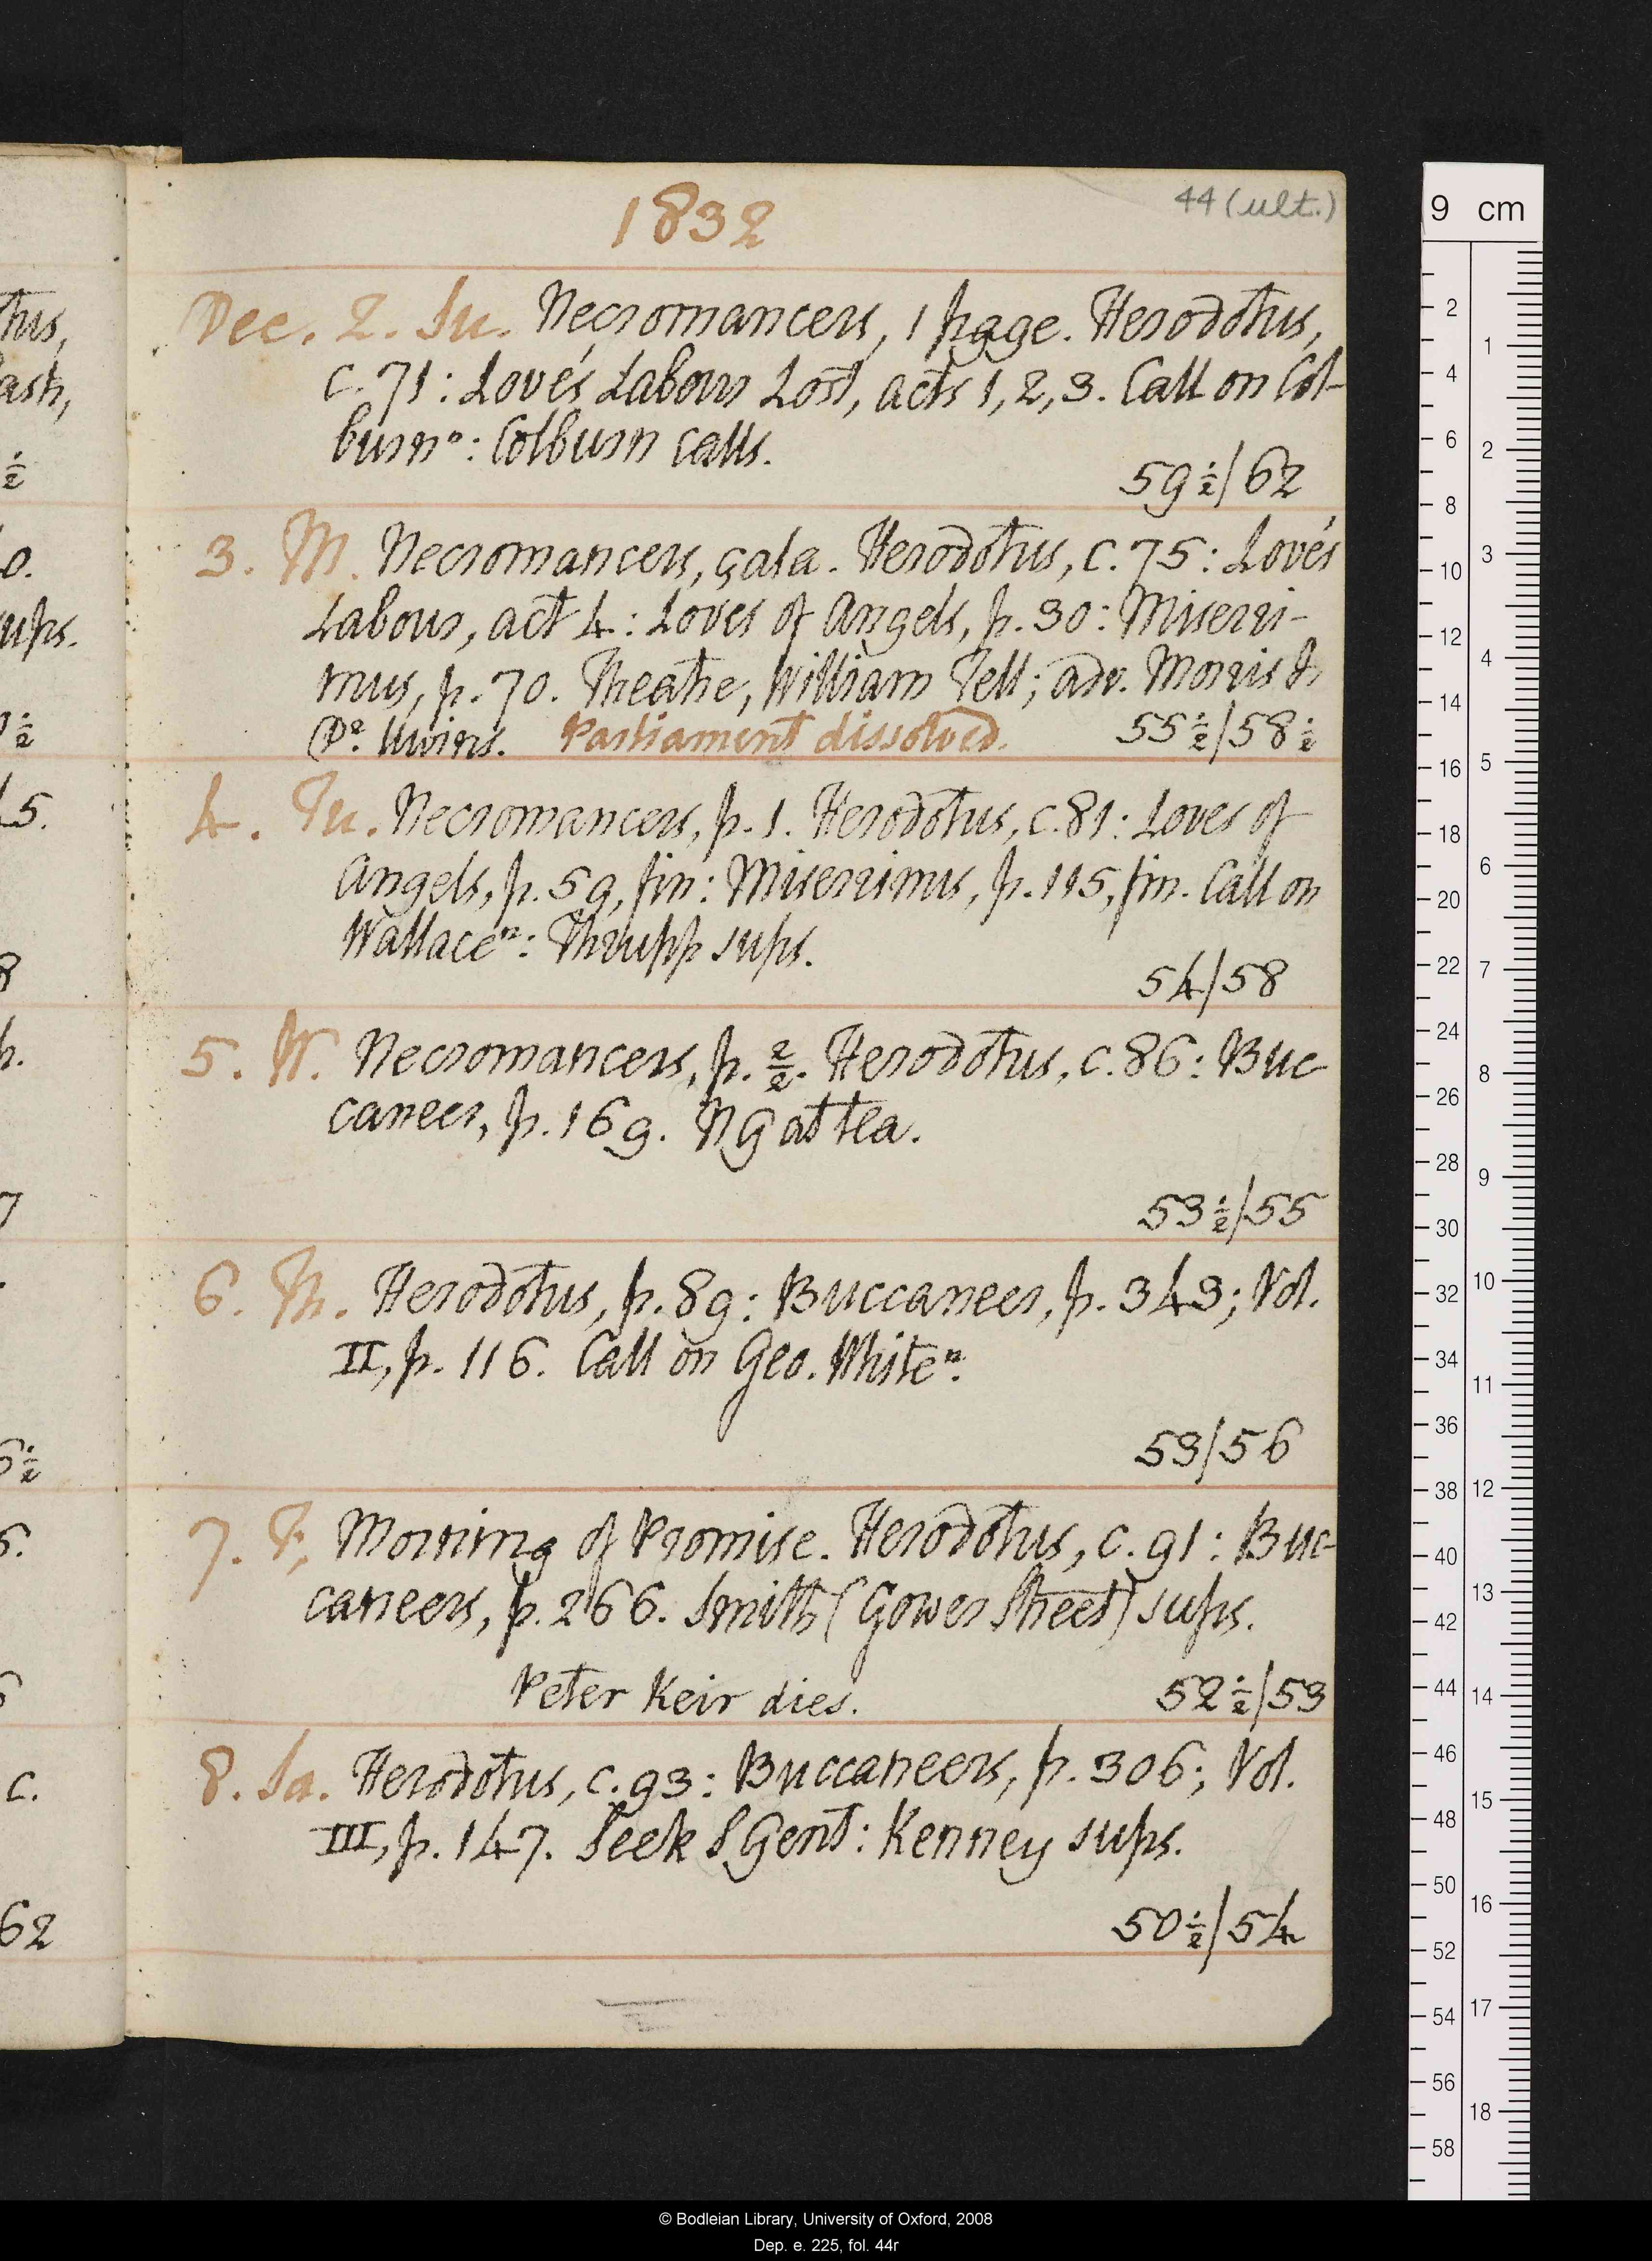 44 (ult.)
1832
Dec. 2. Su. Necromancers, 1 page. Herodotus,
c. 71: Love's Labour Lost, acts 1, 2, 3. Call on Col-
burn ⁿ: Colburn calls.
59 ½/62
3. M. Necromancers, çala. Herodotus, c. 75: Love's
Labour, act 4: Loves of Angels, p. 30: Miserri-
mus, p. 70. Theatre, William Tell; adv. Morris &
Dr. Uwins. Parliament dissolved. 55 ½/58 ½
4. Tu. Necromancers, p. 1. Herodotus, c. 81: Loves of
Angels, p. 59, fin: Miserrimus, p. 115, fin. Call on
Wallace ⁿ: Thrupp sups.
54/58
5. W. Necromancers, p. 2/2. Herodotus, c. 86: Buc-
caneer, p. 169. NG at tea.
53 ½/55
6. Th. Herodotus, p. 89: Buccaneer, p. 343; Vol.
II, p. 116. Call on Geo. White ⁿ.
53/56
7. F, Morning of Promise. Herodotus, c. 91: Buc-
caneers, p. 266. Smith (Gower Street) sups.
Peter Keir dies. 52 ½/53
8. Sa. Herodotus, c. 93: Buccaneers, p. 306; Vol.
III, p. 147. Seek S Gent: Kenney sups.
50 ½/54
tus,
ash,
½
0.
ups.
½
5.
8
p.
7
6 ½
5.
c.
62
9 cm
2
4
6
8
10
12
14
16
18
20
22
24
26
28
30
32
34
36
38
40
42
44
46
48
50
52
54
56
58
1
2
3
4
5
6
7
8
9
10
11
12
13
14
15
16
17
18
© Bodleian Library, University of Oxford, 2008
Dep. e. 225, fol. 44r